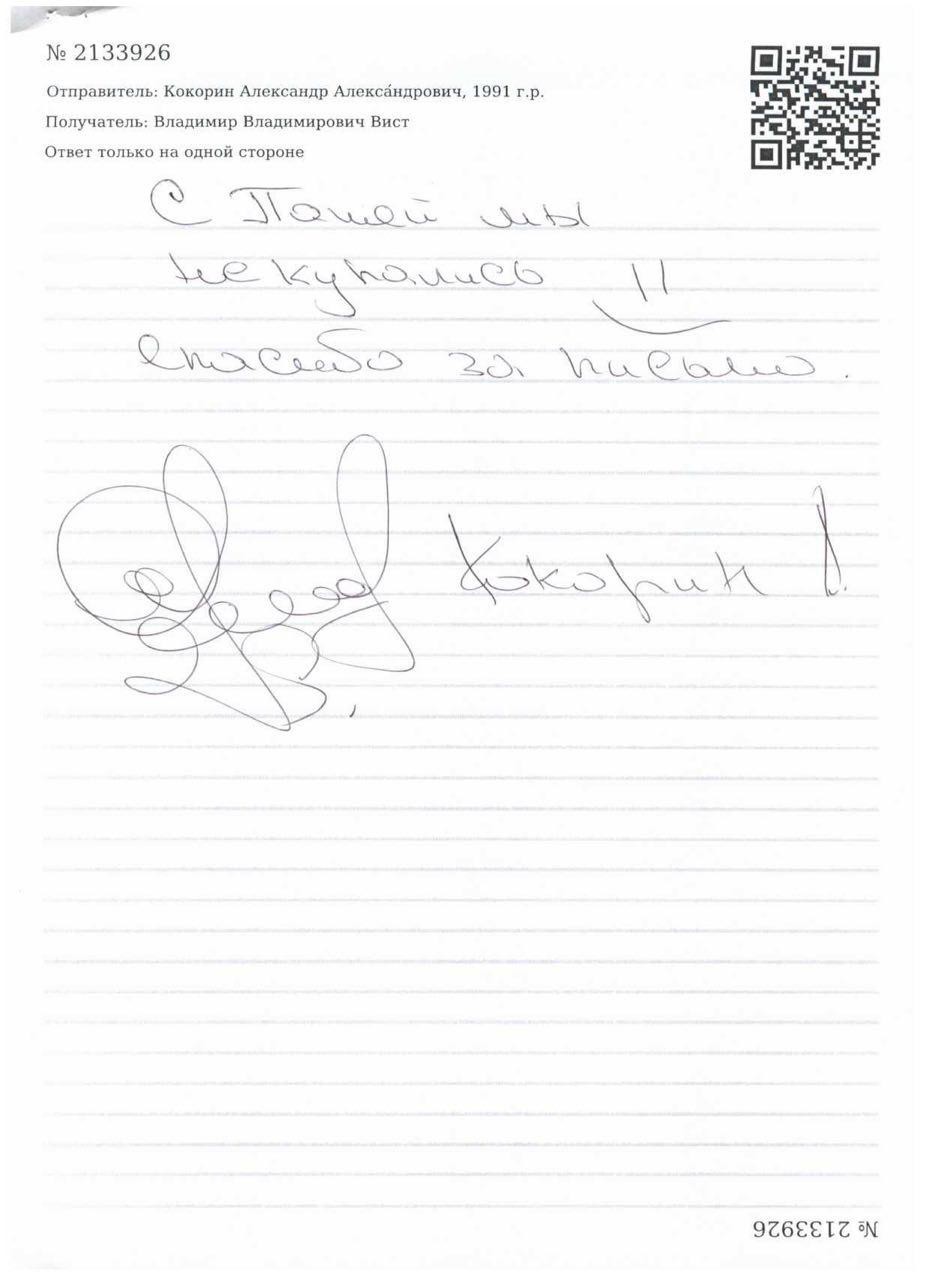 № 2133926
Отправитель: Кокорин Александр Алекса́ндрович, 1991 г.р.
Получатель: Владимир Владимирович Вист
Ответ только на одной стороне
С Пашей мы
не купались
Спасибо за письмо.
Кокорин А.
№ 2133926